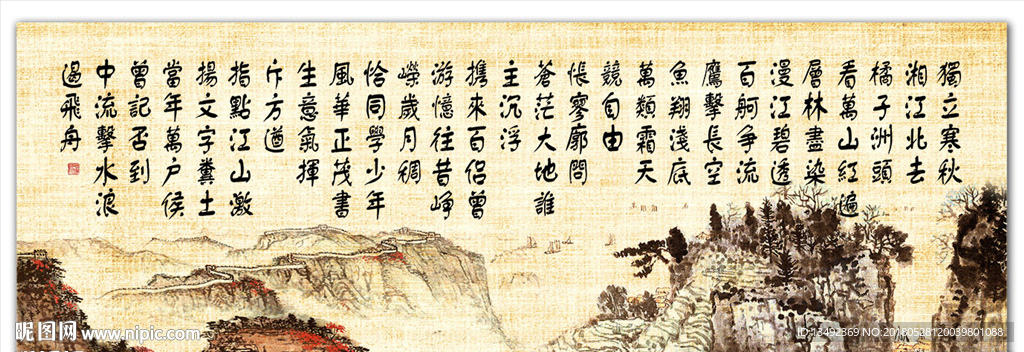 獨立寒秋
湘江北去
橘子洲頭
看萬山紅遍
層林盡染
漫江碧透
百舸爭流
鷹擊長空
魚翔淺底
萬類霜天
競自由
悵寥廓問
蒼茫大地誰
主沉浮
攜來百侣曾
游憶往昔崢
嶸歲月稠
恰同學少年
風華正茂書
生意氣揮
斥方遒
指點江山激
揚文字糞土
當年萬户侯
曾記否到
中流擊水浪
遏飛舟
昵图网 www.nipic.com
ID:13492369 NO:20180528120039801088